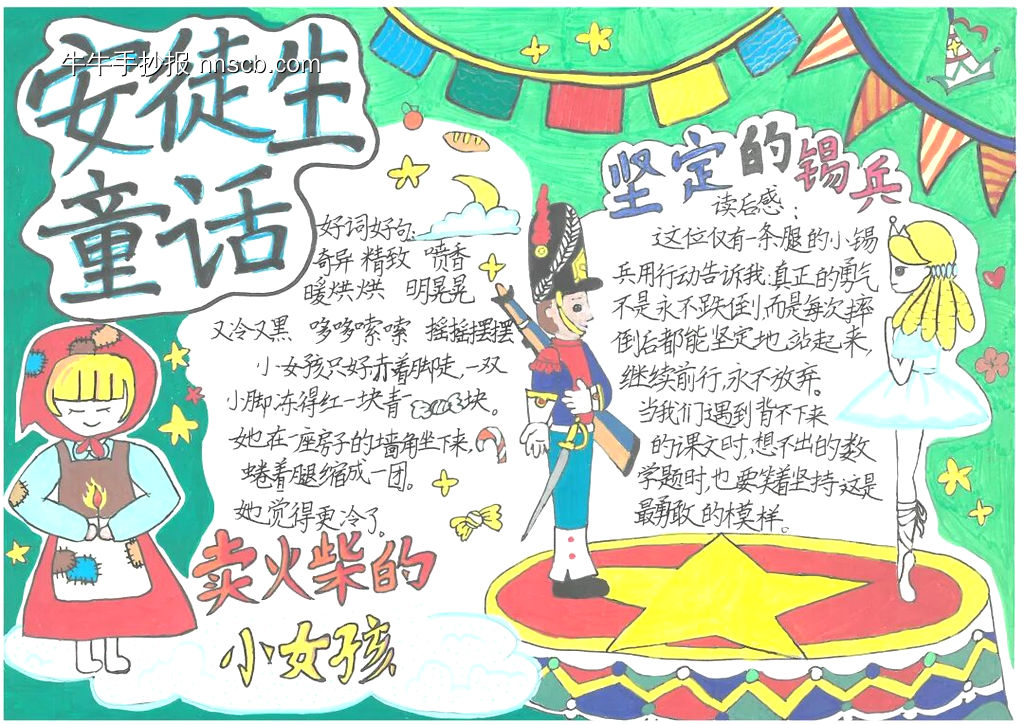 牛牛手抄报 nnscb.com
安徒生
童话
好词好句:
奇异 精致 喷香
暖烘烘 明晃晃
又冷又黑 哆哆嗦嗦 摇摇摆摆
小女孩只好赤着脚走,一双
小脚冻得红一块青一块。
她在一座房子的墙角坐下来,
蜷着腿缩成一团。
她觉得更冷了。
卖火柴的
小女孩
坚定的锡兵
读后感:
这位仅有一条腿的小锡
兵用行动告诉我:真正的勇气
不是永不跌倒,而是每次摔
倒后都能坚定地站起来,
继续前行,永不放弃。
当我们遇到背不下来
的课文时,想不出的数
学题时,也要笑着坚持,这是
最勇敢的模样。